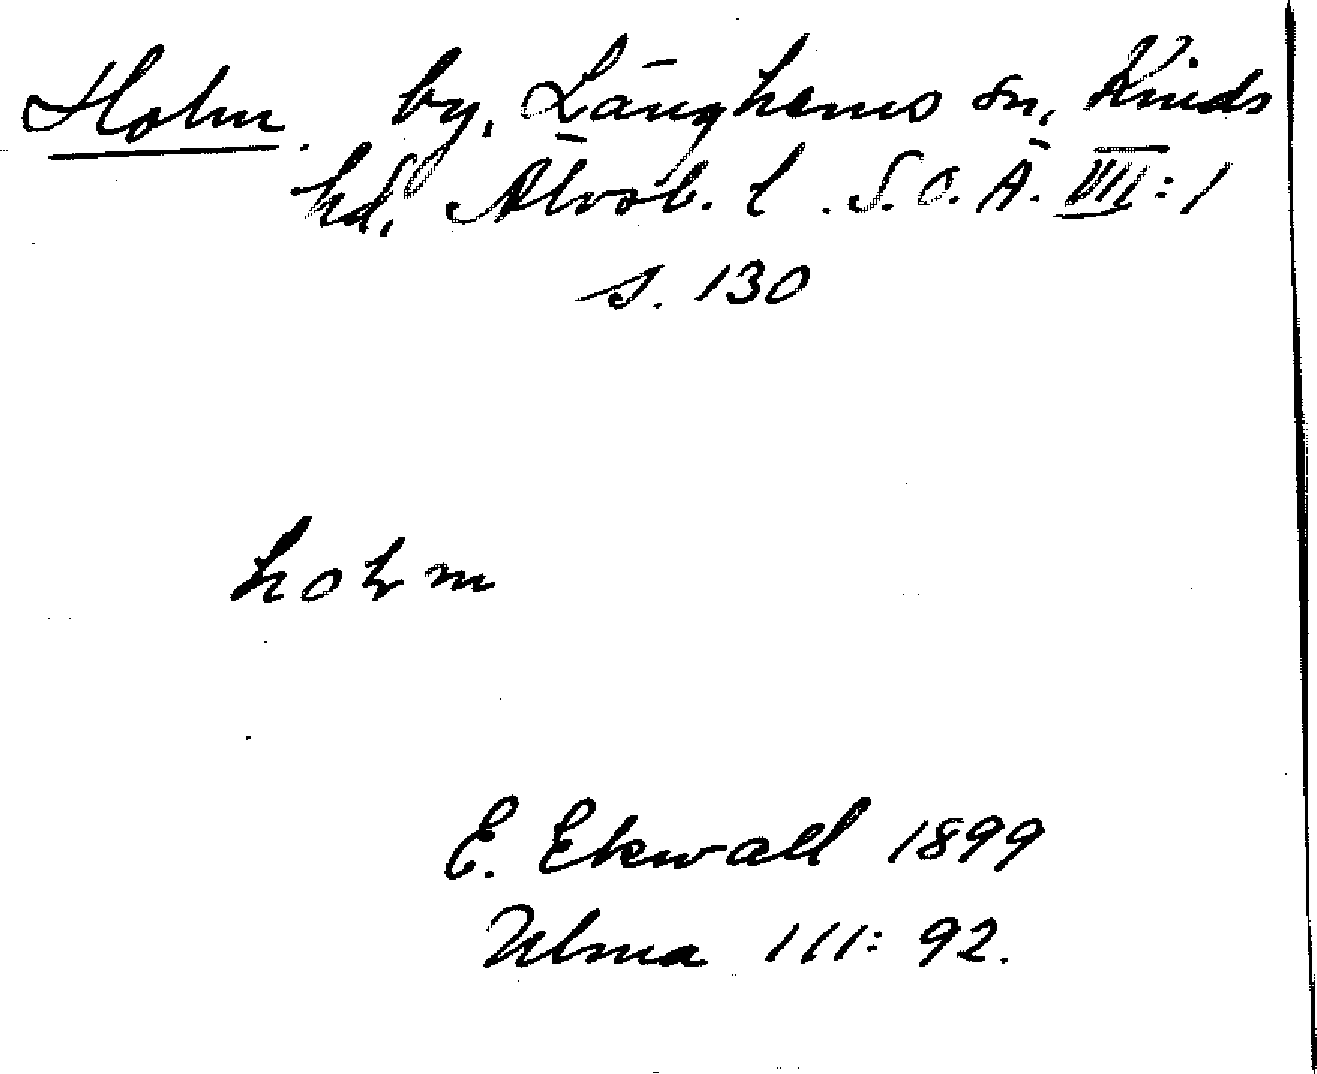 Holm. by, Länghems sn, Kinds
hd, Älvsb. l. S.O.Ä. VIII:1
s. 130
holm
E. Ekwall 1899
Ulma 111: 92.